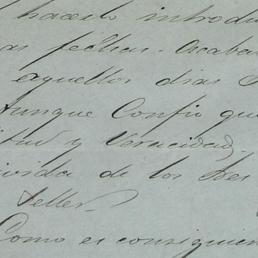 hacerlo introdu
as fechas. Acaba
aquellos dias
Aunque Confio que
itud y Veracidad,
ivida de los Ses
Seller.
Como es consiguien